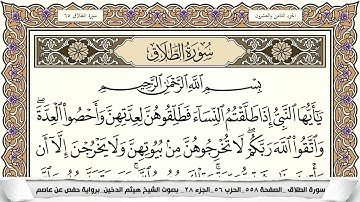 سورة الطلاق ٦٥
الجزء الثامن والعشرون
سُورَةُ الطَّلَاقِ
بِسْمِ اللَّهِ الرَّحْمَٰنِ الرَّحِيمِ
يَا أَيُّهَا النَّبِيُّ إِذَا طَلَّقْتُمُ النِّسَاءَ فَطَلِّقُوهُنَّ لِعِدَّتِهِنَّ وَأَحْصُوا الْعِدَّةَ
وَاتَّقُوا اللَّهَ رَبَّكُمْ لَا تُخْرِجُوهُنَّ مِنْ بُيُوتِهِنَّ وَلَا يَخْرُجْنَ إِلَّا أَنْ
سورة الطلاق _الصفحة ٥٥٨_الحزب ٥٦_الجزء ٢٨_ بصوت الشيخ هيثم الدخين_برواية حفص عن عاصم